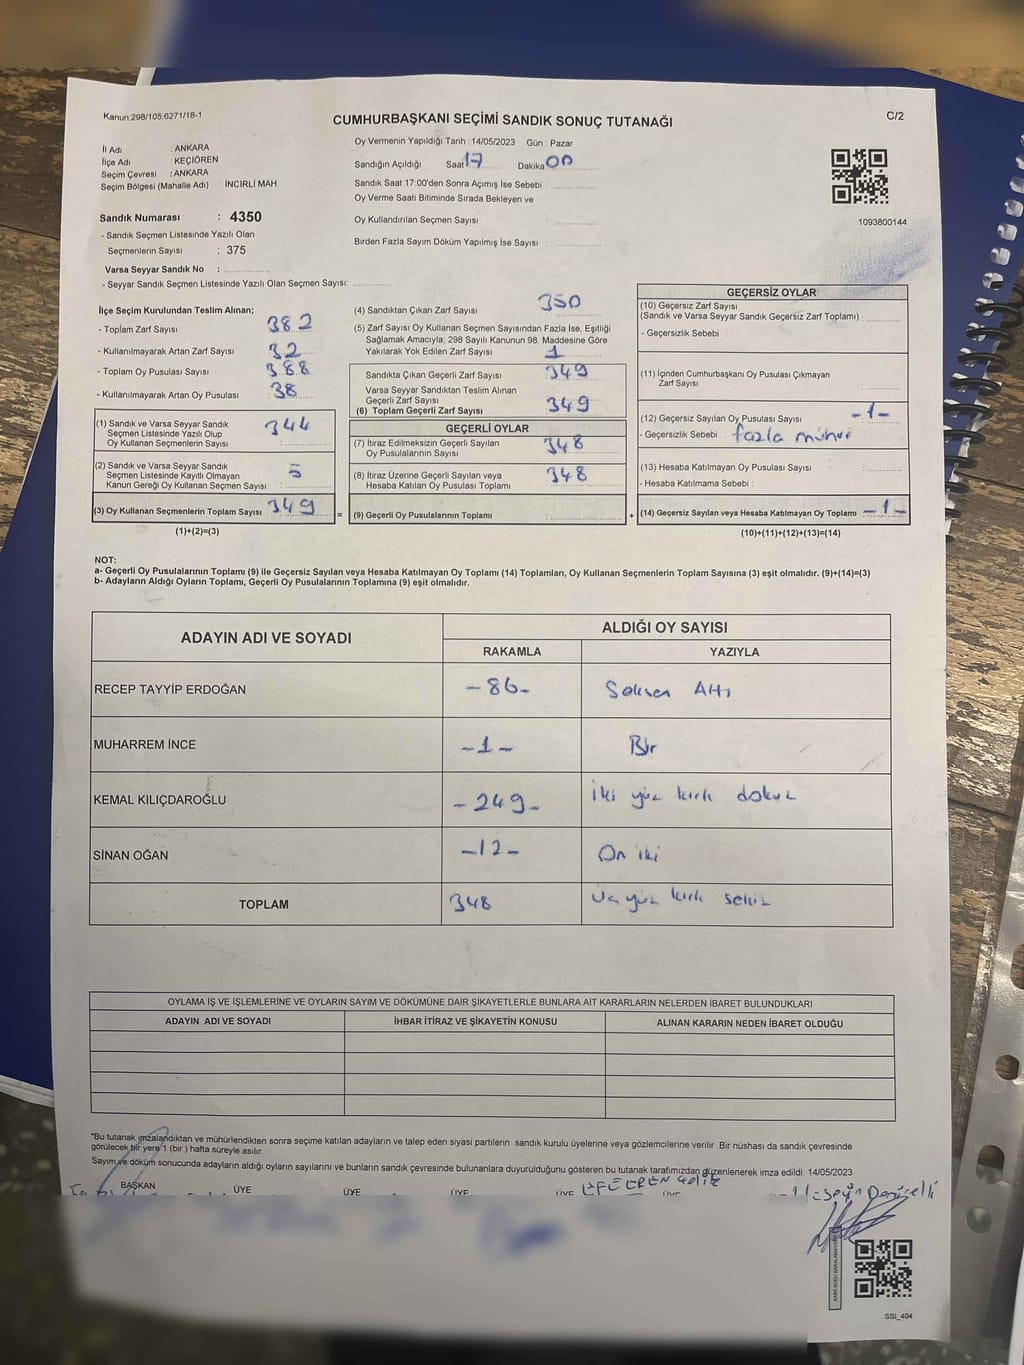 Kanun,298/105,6271/18-1
CUMHURBAŞKANI SEÇİMİ SANDIK SONUÇ TUTANAĞI
C/2
İl Adı : ANKARA
İlçe Adı : KEÇİÖREN
Seçim Çevresi : ANKARA
Seçim Bölgesi (Mahalle Adı) : İNCİRLİ MAH.
Oy Vermenin Yapıldığı Tarih : 14/05/2023 Gün : Pazar
Sandığın Açıldığı Saat 17 Dakika 00
Sandık Saat 17:00'den Sonra Açılmış İse Sebebi :
Oy Verme Saati Bitiminde Sırada Bekleyen ve
Oy Kullandırılan Seçmen Sayısı :
Birden Fazla Sayım Döküm Yapılmış İse Sayısı :
1093800144
Sandık Numarası : 4350
- Sandık Seçmen Listesinde Yazılı Olan
Seçmenlerin Sayısı : 375
Varsa Seyyar Sandık No :
- Seyyar Sandık Seçmen Listesinde Yazılı Olan Seçmen Sayısı:
İlçe Seçim Kurulundan Teslim Alınan;
- Toplam Zarf Sayısı 382
- Kullanılmayarak Artan Zarf Sayısı 32
- Toplam Oy Pusulası Sayısı 388
- Kullanılmayarak Artan Oy Pusulası 38
(1) Sandık ve Varsa Seyyar Sandık
Seçmen Listesinde Yazılı Olup
Oy Kullanan Seçmenlerin Sayısı : 344
(2) Sandık ve Varsa Seyyar Sandık
Seçmen Listesinde Kayıtlı Olmayan
Kanun Gereği Oy Kullanan Seçmen Sayısı : 5
(3) Oy Kullanan Seçmenlerin Toplam Sayısı : 349 =
(1)+(2)=(3)
(4) Sandıktan Çıkan Zarf Sayısı 350
(5) Zarf Sayısı Oy Kullanan Seçmen Sayısından Fazla İse, Eşitliği
Sağlamak Amacıyla; 298 Sayılı Kanunun 98. Maddesine Göre
Yakılarak Yok Edilen Zarf Sayısı 1
Sandıkta Çıkan Geçerli Zarf Sayısı 349
Varsa Seyyar Sandıktan Teslim Alınan
Geçerli Zarf Sayısı
(6) Toplam Geçerli Zarf Sayısı 349
GEÇERLİ OYLAR
(7) İtiraz Edilmeksizin Geçerli Sayılan
Oy Pusulalarının Sayısı 348
(8) İtiraz Üzerine Geçerli Sayılan veya
Hesaba Katılan Oy Pusulası Toplamı 348
(9) Geçerli Oy Pusulalarının Toplamı +
GEÇERSİZ OYLAR
(10) Geçersiz Zarf Sayısı
(Sandık ve Varsa Seyyar Sandık Geçersiz Zarf Toplamı) :
- Geçersizlik Sebebi :
(11) İçinden Cumhurbaşkanı Oy Pusulası Çıkmayan
Zarf Sayısı :
(12) Geçersiz Sayılan Oy Pusulası Sayısı -1-
- Geçersizlik Sebebi : fazla mühür
(13) Hesaba Katılmayan Oy Pusulası Sayısı :
- Hesaba Katılmama Sebebi :
(14) Geçersiz Sayılan veya Hesaba Katılmayan Oy Toplamı -1-
(10)+(11)+(12)+(13)=(14)
NOT:
a- Geçerli Oy Pusulalarının Toplamı (9) ile Geçersiz Sayılan veya Hesaba Katılmayan Oy Toplamı (14) Toplamları, Oy Kullanan Seçmenlerin Toplam Sayısına (3) eşit olmalıdır. (9)+(14)=(3)
b- Adayların Aldığı Oyların Toplamı, Geçerli Oy Pusulalarının Toplamına (9) eşit olmalıdır.
ADAYIN ADI VE SOYADI ALDIĞI OY SAYISI
RAKAMLA YAZIYLA
RECEP TAYYİP ERDOĞAN -86- Seksen Altı
MUHARREM İNCE -1- Bir
KEMAL KILIÇDAROĞLU -249- İki yüz kırk dokuz
SİNAN OĞAN -12- On iki
TOPLAM 348 Üç yüz kırk sekiz
OYLAMA İŞ VE İŞLEMLERİNE VE OYLARIN SAYIM VE DÖKÜMÜNE DAİR ŞİKAYETLERLE BUNLARA AİT KARARLARIN NELERDEN İBARET BULUNDUKLARI
ADAYIN ADI VE SOYADI İHBAR İTİRAZ VE ŞİKAYETİN KONUSU ALINAN KARARIN NEDEN İBARET OLDUĞU
*Bu tutanak imzalandıktan ve mühürlendikten sonra seçime katılan adayların ve talep eden siyasi partilerin sandık kurulu üyelerine veya gözlemcilerine verilir .Bir nüshası da sandık çevresinde
görülecek bir yere 1 (bir ) hafta süreyle asılır.
Sayım ve döküm sonucunda adayların aldığı oyların sayılarını ve bunların sandık çevresinde bulunanlara duyurulduğunu gösteren bu tutanak tarafımızdan düzenlenerek imza edildi. 14/05/2023
BAŞKAN ÜYE ÜYE ÜYE ÜYE EFE EREN ÜYE
SSI_404